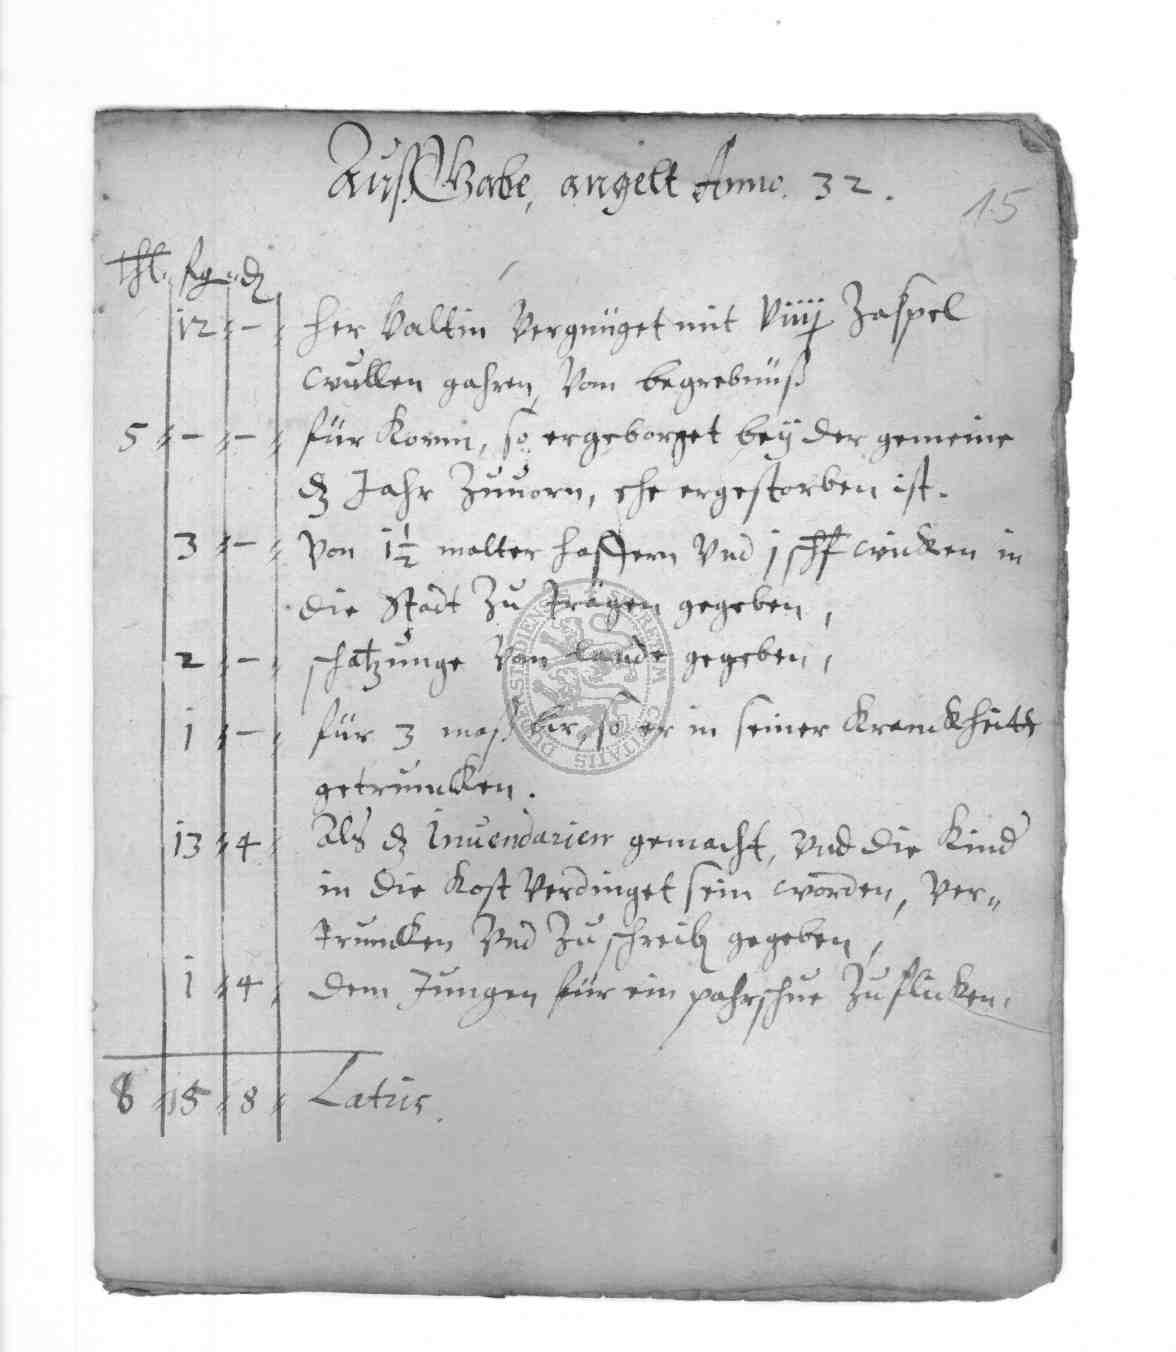 Außgabe, angelt Anno. 32.
15
thl. sg. d
12 — her Valtin Vergnüget mit Viiij Zaspel
wullen gahren, Vom begrebnüß
5 — — für Kornn, so ergeborget beÿ der gemeine
dz Jahr Zuuorn, ehe ergestorben ist.
3 — Von 1½ molter haffern Vnd j schf wicken in
die Stadt Zu Trägen gegeben,
2 — schatzunge Von Lande gegeben,
1 — für 3 maß bir, so er in seiner Kranckheitt
getruncken.
13 4 Als dz Inuendarien gemacht, Vnd die Kind
in die Kost Verdinget sein worden, Ver-
truncken Vnd Zu schreib gegeben,
1 4 dem Jungen für ein pahrschue Zu flicken.
8 15 8 Latus.